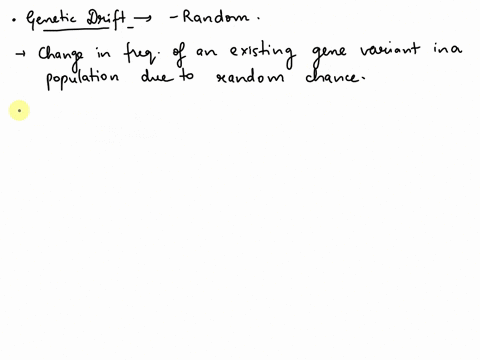 • Genetic Drift → - Random.
→ Change in freq. of an existing gene variant in a
population due to random chance.
•